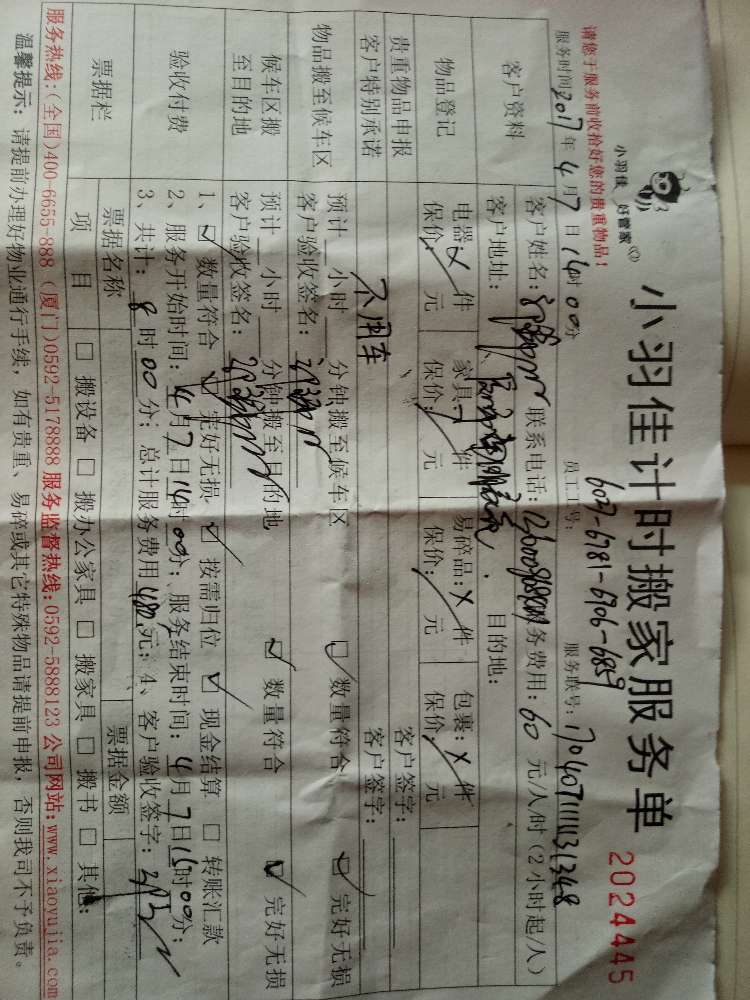 请您于服务前收拾好您的贵重物品!
小羽佳 好管家
小羽佳计时搬家服务单
2024445
服务时间2017年4月7日14时00分 员工工号: 6037-6781-6706-6859 服务联号:
客户资料
客户姓名: 联系电话: 服务费用: 60 元/人/时 (2小时起/人)
客户地址: 目的地:
物品登记
电器: 件 家具: 件 易碎品: 件 包裹: 件
保价: 元 保价: 元 保价: 元 保价: 元
贵重物品申报 客户签字:
客户特别承诺 不用车 客户签字:
物品搬至候车区
预计 小时 分钟搬至候车区 数量符合 完好无损
客户验收签名:
候车区搬至目的地
预计 小时 分钟搬至目的地 数量符合 完好无损
客户验收签名:
验收付费
1、 数量符合 完好无损 按需归位 现金结算 转账汇款
2、服务开始时间: 4月7日14时00分; 服务结束时间: 4月7日16时00分;
3、共计: 8时00分; 总计服务费用 480 元; 4、客户验收签字:
票据栏
票据名称 票据金额
项目 搬设备 搬办公家具 搬家具 搬书 其他:
服务热线:(全国)400-6655-888 (厦门)0592-5178888 服务监督热线:0592-5888123 公司网站:www.xiaoyujia.com
温馨提示: 请提前办理好物业通行手续, 如有贵重、易碎或其它特殊物品请提前申报, 否则我司不予负责。